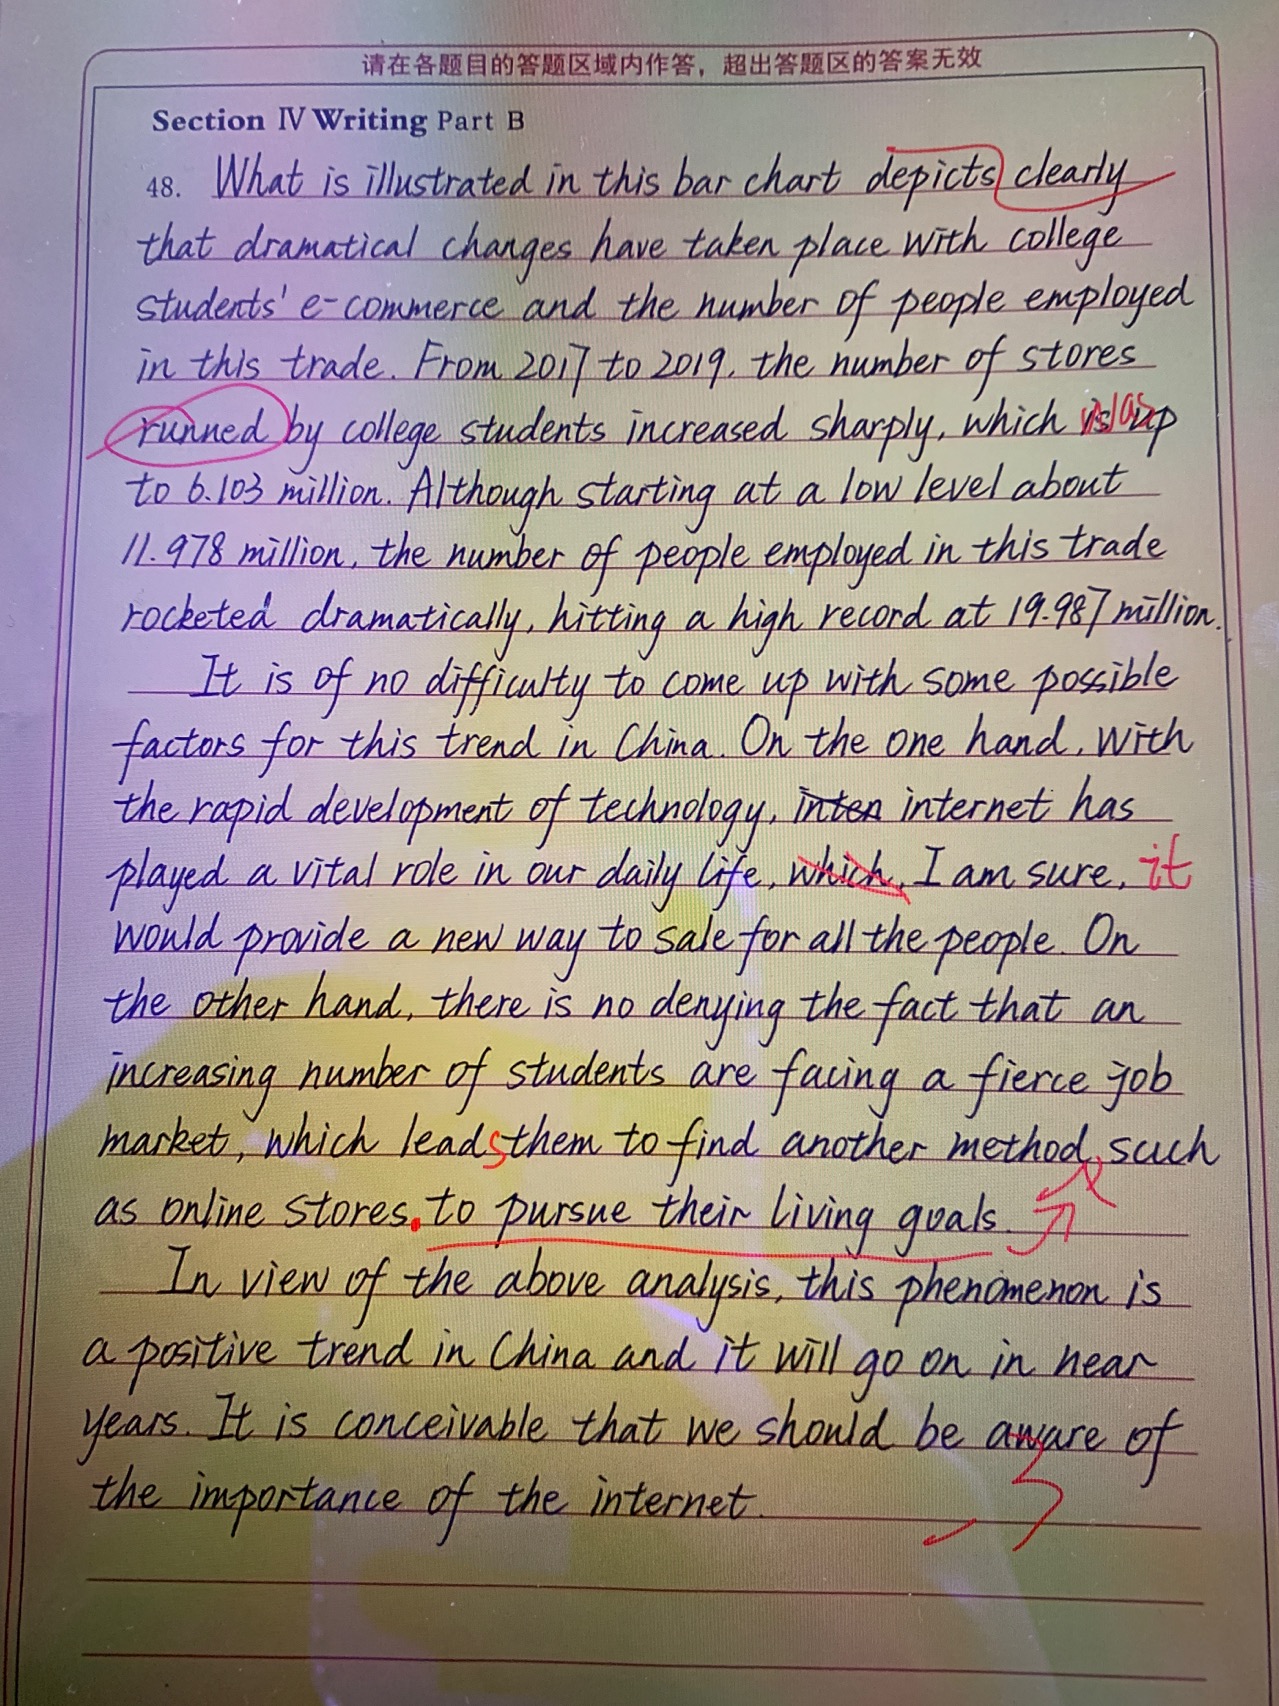 请在各题目的答题区域内作答，超出答题区的答案无效
Section IV Writing Part B
48. What is illustrated in this bar chart depicts clearly
that dramatical changes have taken place with college
students' e-commerce and the number of people employed
in this trade. From 2017 to 2019, the number of stores
runned by college students increased sharply, which is was up
to 6.103 million. Although starting at a low level about
11.978 million, the number of people employed in this trade
rocketed dramatically, hitting a high record at 19.987 million.
It is of no difficulty to come up with some possible
factors for this trend in China. On the one hand, with
the rapid development of technology, inten internet has
played a vital role in our daily life, which, I am sure, it
would provide a new way to sale for all the people. On
the other hand, there is no denying the fact that an
increasing number of students are facing a fierce job
market, which leads them to find another method, such
as online stores. to pursue their living goals.
In view of the above analysis, this phenomenon is
a positive trend in China and it will go on in near
years. It is conceivable that we should be aware of
the importance of the internet.